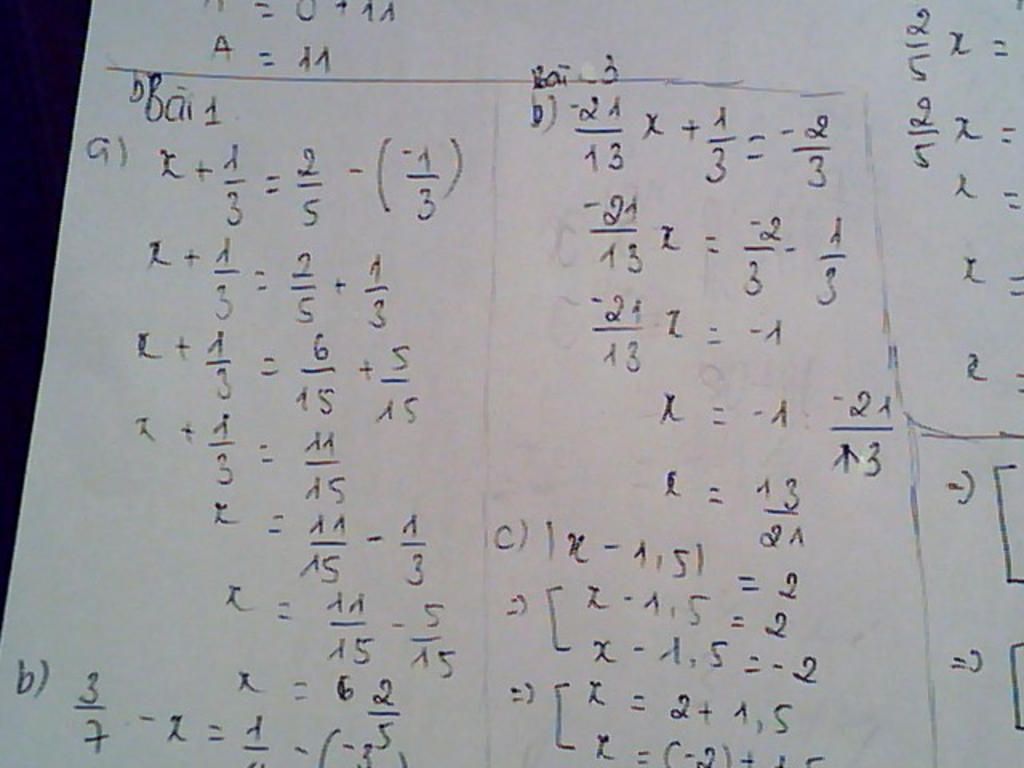 A = 0 + 11
A = 11
Bài 1
a) x + 1/3 = 2/5 - (-1/3)
x + 1/3 = 2/5 + 1/3
x + 1/3 = 6/15 + 5/15
x + 1/3 = 11/15
x = 11/15 - 1/3
x = 11/15 - 5/15
x = 6 2/5
b) 3/7 - x = 1/ - (-3/
Bài 3
b) -21/13 x + 1/3 = -2/3
-21/13 x = -2/3 - 1/3
-21/13 x = -1
x = -1 -21/13
x = 13/21
c) |x - 1,5| = 2
=> [ x - 1,5 = 2
x - 1,5 = -2
=> [ x = 2 + 1,5
x = (-2) + 1,5
x =
x =
x =
x =
x =
=> [
=> [